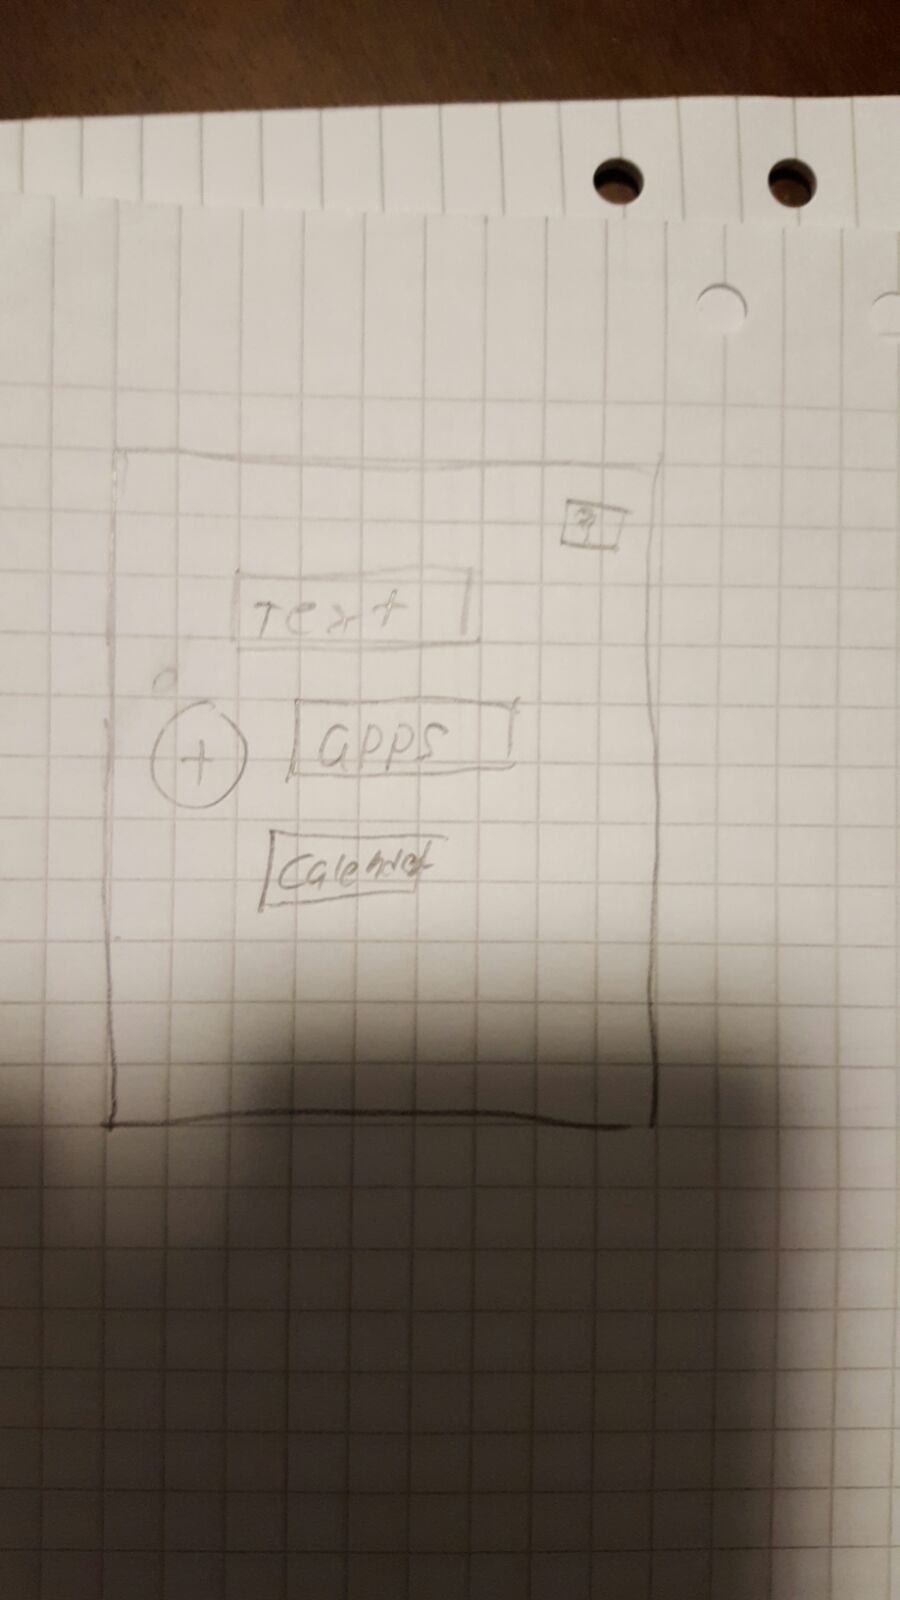 ?
Text
apps
Calender
+